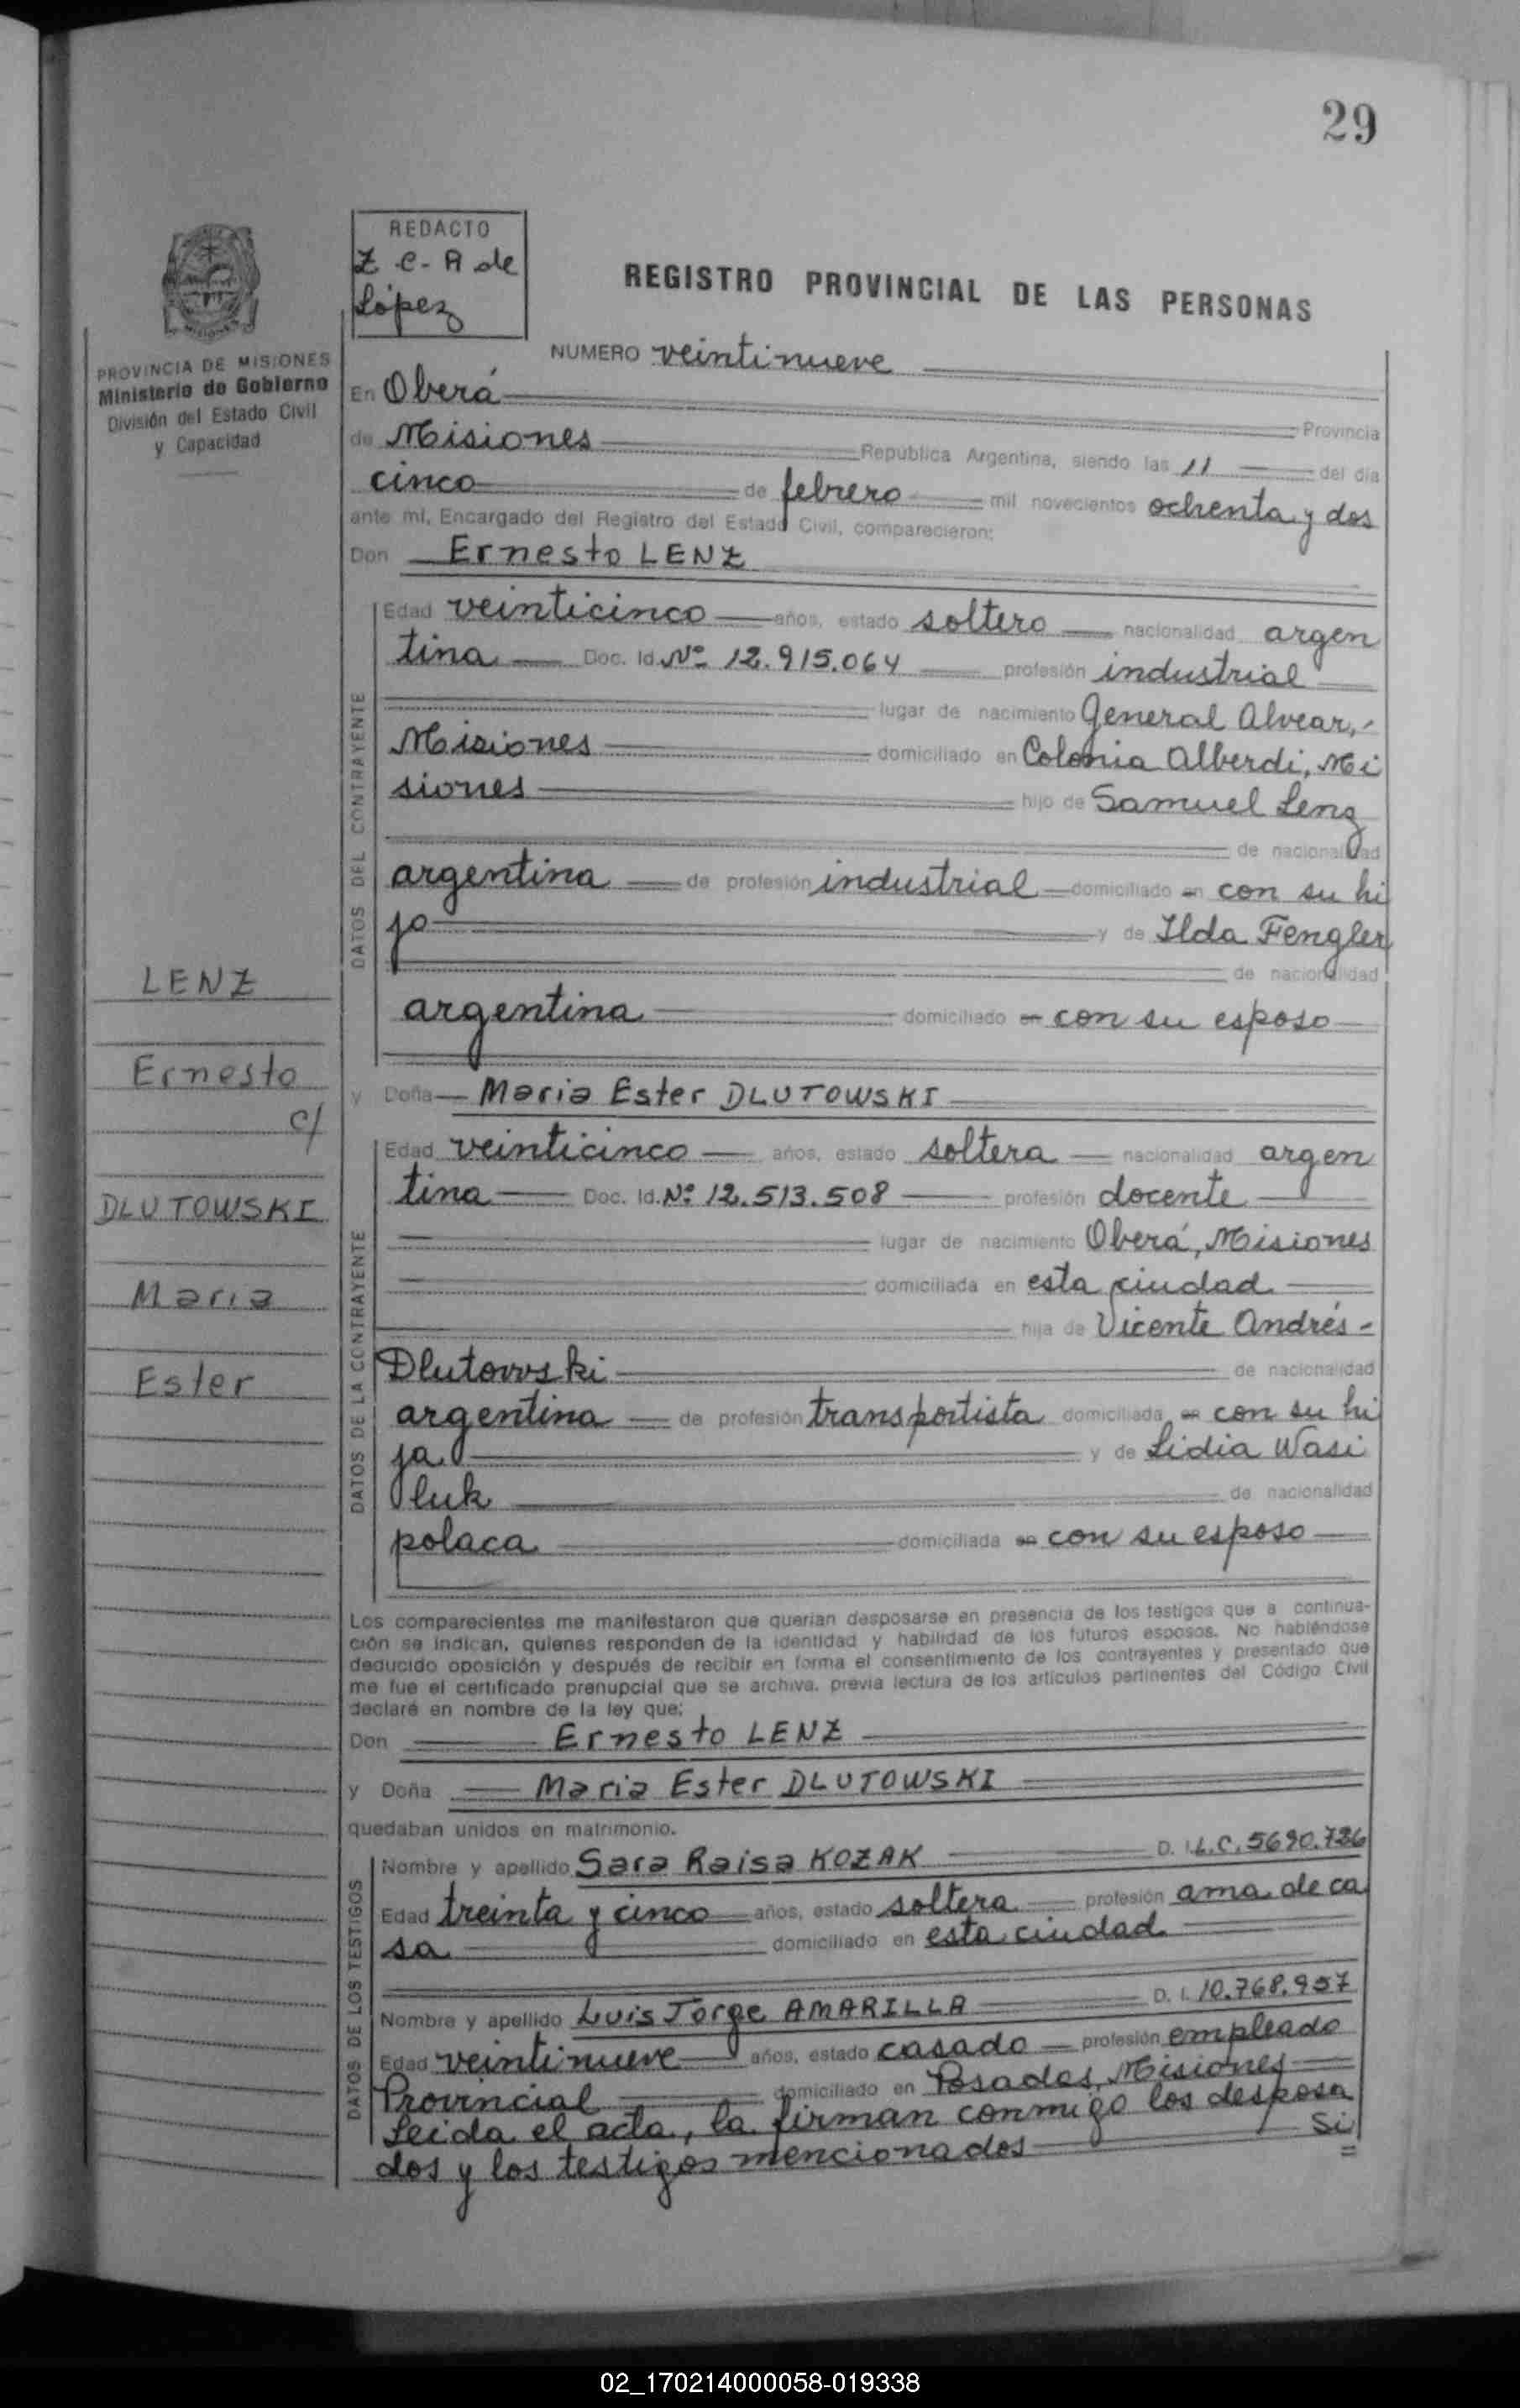 29
REDACTO
Z. C. A de
López
REGISTRO PROVINCIAL DE LAS PERSONAS
PROVINCIA DE MISIONES
Ministerio de Gobierno
División del Estado Civil
y Capacidad
NUMERO veintinueve
En Oberá Provincia
de Misiones República Argentina, siendo las 11 del día
cinco de febrero mil novecientos ochenta y dos
ante mí, Encargado del Registro del Estado Civil, comparecieron:
Don Ernesto LENZ
DATOS DEL CONTRAYENTE
Edad veinticinco años, estado soltero nacionalidad argen
tina Doc. Id. Nº 12.915.064 profesión industrial
lugar de nacimiento General Alvear,-
Misiones domiciliado en Colonia Alberdi, Mi
siones hijo de Samuel Lenz
de nacionalidad
argentina de profesión industrial domiciliado en con su hi
jo y de Ilda Fengler
de nacionalidad
argentina domiciliado en con su esposo
y Doña Maria Ester DLUTOWSKI
DATOS DE LA CONTRAYENTE
Edad veinticinco años, estado soltera nacionalidad argen
tina Doc. Id. Nº 12.513.508 profesión docente
lugar de nacimiento Oberá, Misiones
domiciliada en esta ciudad
hija de Vicente Andrés-
Dlutowski de nacionalidad
argentina de profesión transportista domiciliada en con su hi
ja y de Lidia Wasi
luk de nacionalidad
polaca domiciliada en con su esposo
LENZ
Ernesto
c/
DLUTOWSKI
Maria
Ester
Los comparecientes me manifestaron que querían desposarse en presencia de los testigos que a continua-
ción se indican, quienes responden de la identidad y habilidad de los futuros esposos. No habiéndose
deducido oposición y después de recibir en forma el consentimiento de los contrayentes y presentado que
me fue el certificado prenupcial que se archiva, previa lectura de los artículos pertinentes del Código Civil
declaré en nombre de la ley que:
Don Ernesto LENZ
y Doña Maria Ester DLUTOWSKI
quedaban unidos en matrimonio.
DATOS DE LOS TESTIGOS
Nombre y apellido Sara Raisa KOZAK D. I. L.C. 5690.726
Edad treinta y cinco años, estado soltera profesión ama de ca
sa domiciliado en esta ciudad
Nombre y apellido Luis Jorge AMARILLA D. I. 10.768.957
Edad veintinueve años, estado casado profesión empleado
Provincial domiciliado en Posadas, Misiones
Leida el acta, la firman conmigo los desposa
dos y los testigos mencionados Si
02_170214000058-019338